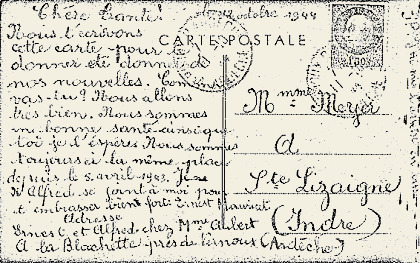 octobre 1944
Chère Tante!
CARTE POSTALE
Nous t'écrivons
cette carte pour te
donner et de
nos nouvelles. Com
vas-tu? Nous allons
très bien. Nous sommes
en bonne santé ainsi que
toi je l'espère. Nous sommes
toujours à la même place
depuis le 8 avril 1943. Je
Alfred, se joint à moi pour
et embrasser bien fort. Ernest
Adresse
Ernest et Alfred chez Mme Aubert
A la Blachette près de Vernoux (Ardèche)
Mme Meyer
à
Ste Lizaigne
(Indre)